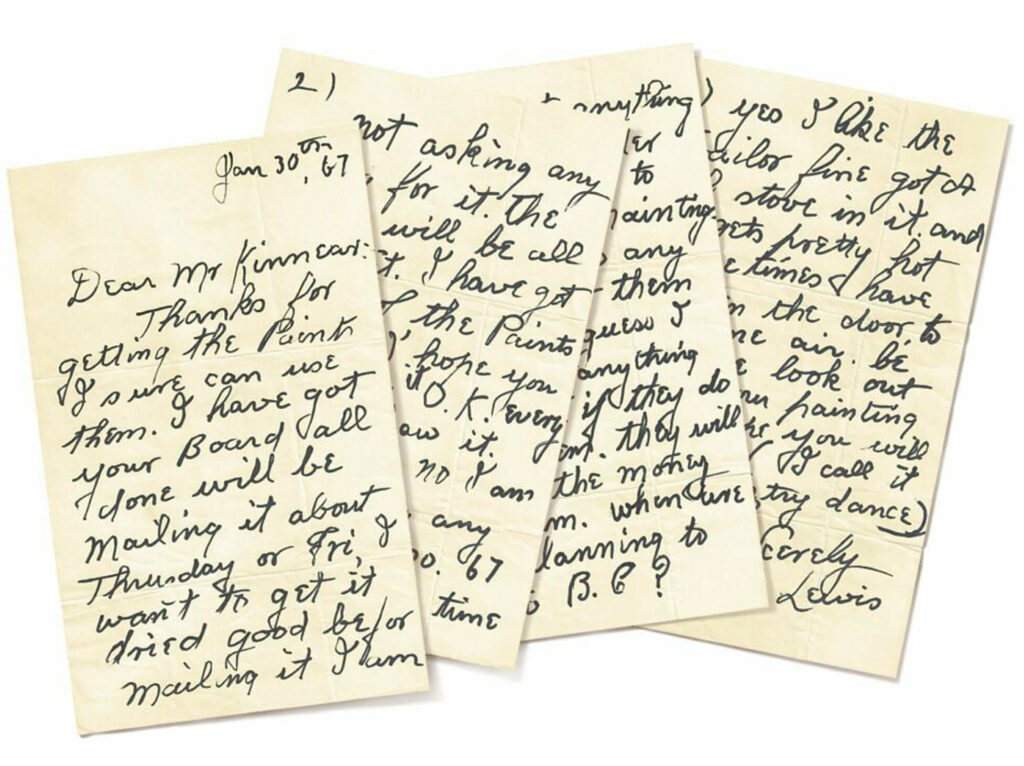 Jan 30th, 67
Dear Mr Kinnear:
Thanks for
getting the Paints
I sure can use
them. I have got
your Board all
done will be
Mailing it about
Thrusday or Fri, I
want to get it
dried good befor
Mailing it I am
2)
not asking any
for it. The
will be all
it. I have got
the Paints
hope you
it O.K. every
it.
no I am
any
67
time
anything
to
painting
any
them
guess I
anything
if they do
they will
the money
when are
planning to
B.C ?
yes I like the
Tailor fine got a
stove in it. and
gets pretty hot
times I have
the door, to
air. be
look out
painting
you will
(I call it
try dance)
Lewis